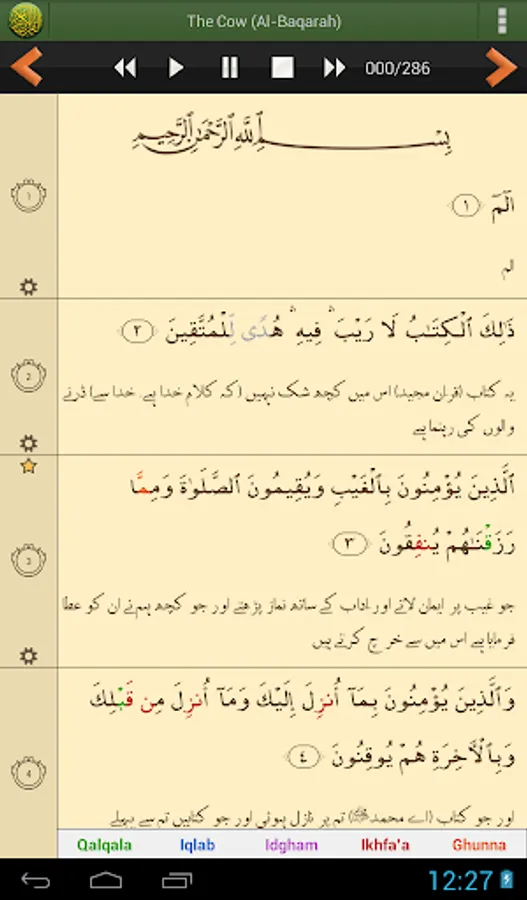 The Cow (Al-Baqarah)
000/286
بِسْمِ ٱللَّهِ ٱلرَّحْمَٰنِ ٱلرَّحِيمِ
الٓمٓ ١
1
الم
ذَٰلِكَ ٱلْكِتَٰبُ لَا رَيْبَ ۛ فِيهِ ۛ هُدًى لِّلْمُتَّقِينَ ٢
2
یہ کتاب (قرآن مجید) اس میں کچھ شک نہیں (کہ کلامِ خدا ہے۔ خدا سے) ڈرنے
والوں کی رہنما ہے
ٱلَّذِينَ يُؤْمِنُونَ بِٱلْغَيْبِ وَيُقِيمُونَ ٱلصَّلَوٰةَ وَمِمَّا
رَزَقْنَٰهُمْ يُنفِقُونَ ٣
3
جو غیب پر ایمان لاتے اور آداب کے ساتھ نماز پڑھتے اور جو کچھ ہم نے ان کو عطا
فرمایا ہے اس میں سے خرچ کرتے ہیں
وَٱلَّذِينَ يُؤْمِنُونَ بِمَآ أُنزِلَ إِلَيْكَ وَمَآ أُنزِلَ مِن قَبْلِكَ
وَبِٱلْأَخِرَةِ هُمْ يُوقِنُونَ ٤
4
اور جو کتاب (اے محمدﷺ) تم پر نازل ہوئی اور جو کتابیں تم سے پہلے
Qalqala Iqlab Idgham Ikhfa'a Ghunna
12:27